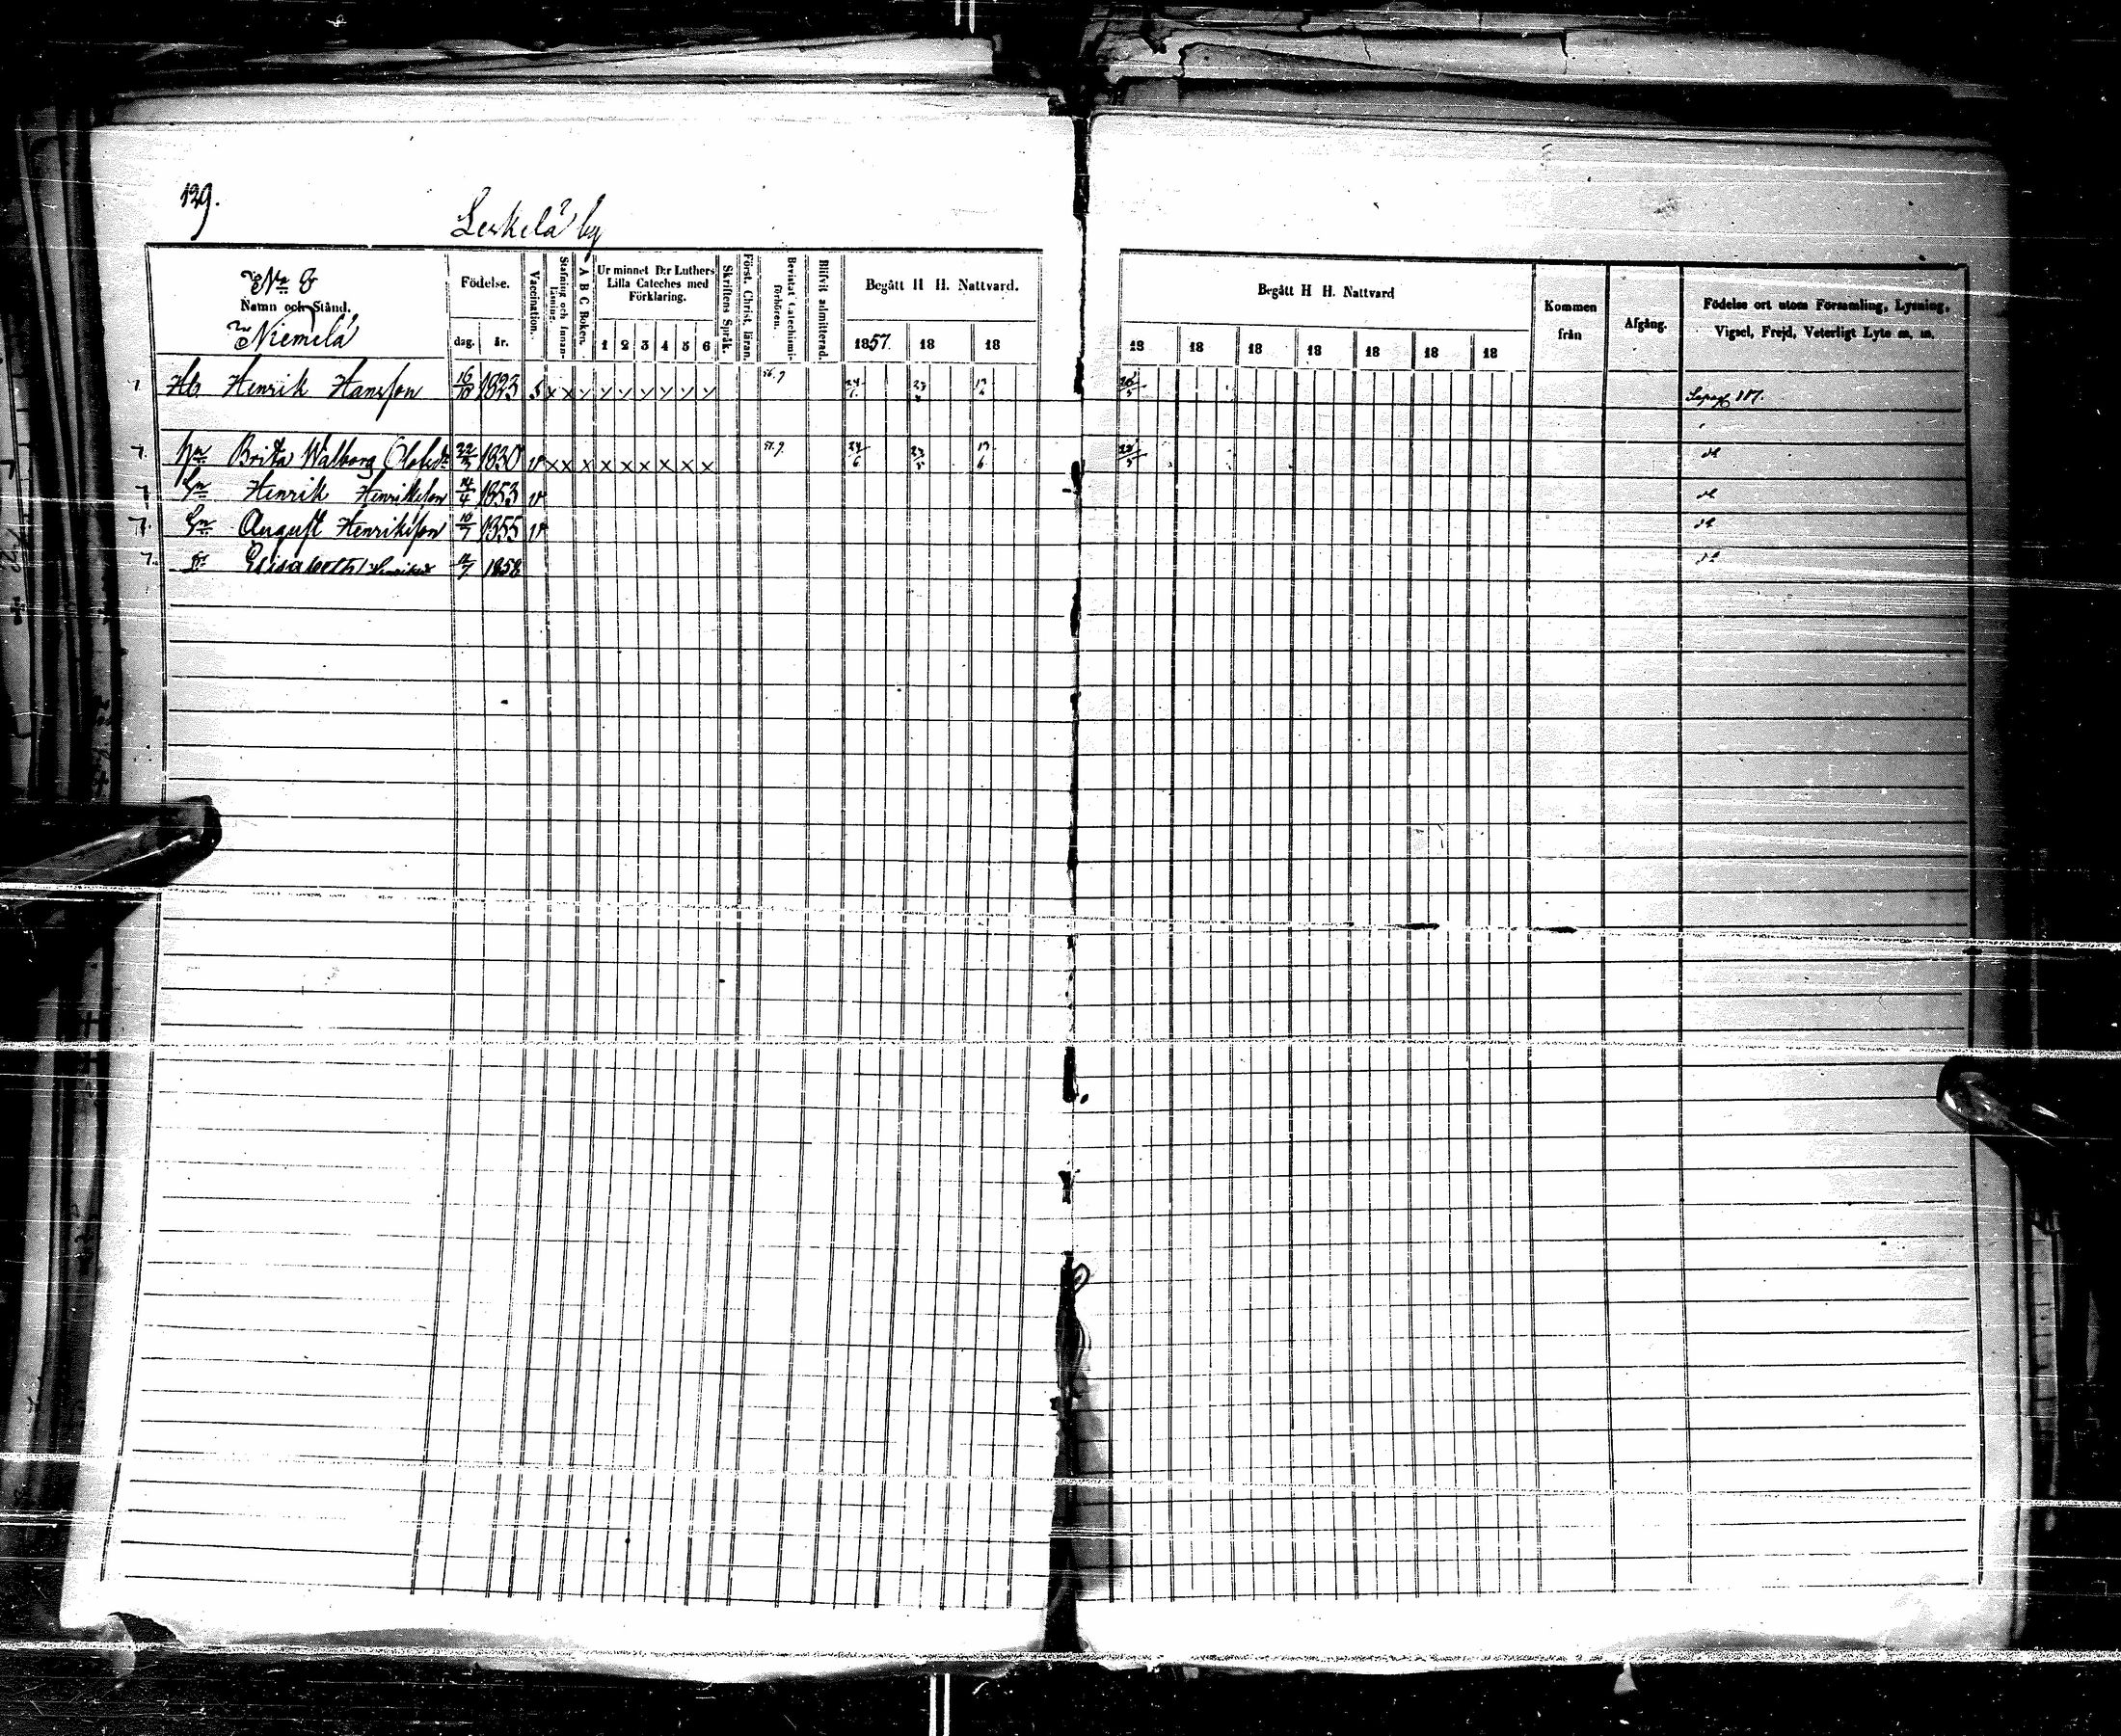 129.
Leskelä by
No 8
Namn och Stånd.
Niemelä
Födelse.
dag. år.
Vaccination.
Stafning och Innanläsning.
A B C Boken.
Ur minnet D:r Luthers Lilla Cateches med Förklaring.
1 2 3 4 5 6
Skriftens Språk.
Förat. Christ. läran.
Bevistat Catechismiförhören.
Blifvit admitterad.
Begått H H. Nattvard.
1857. 18 18
Begått H H. Nattvard
18 18 18 18 18 18 18
Kommen från
Afgång.
Födelse ort utom Församling, Lysning, Vigsel, Frejd, Veterligt Lyte m. m.
7. Hb. Henrik Hansson 16/10 1823 s x x y y y y y y y 24/6 23/5 26/5 187.
7. Hu Brita Walborg Olofsdr 22/3 1830 v x x x x x x x x x 57.9 24/6 23/5 19/6 28/5 dt
7 Sn Henrik Henriksson 14/4 1853 v dt
7. Sn August Henriksson 10/7 1855 v dt
7. dr Elisabeth Henriksd 12/7 1858 dt